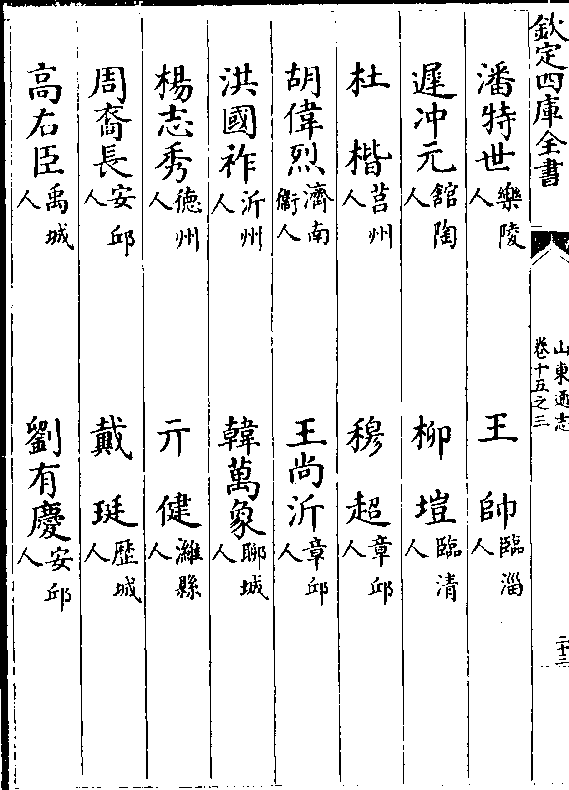 欽定四庫全書
山東通志
卷十五之三
二十三
潘特世樂陵人 王帥臨淄人
遲冲元館陶人 柳塏臨清人
杜楷莒州人 穆超章邱人
胡偉烈濟南衞人 王尚沂章邱人
洪國祚沂州人 韓萬象聊城人
楊志秀德州人 亓健濰縣人
周裔長安邱人 戴珽歷城人
高右臣禹城人 劉有慶安邱人